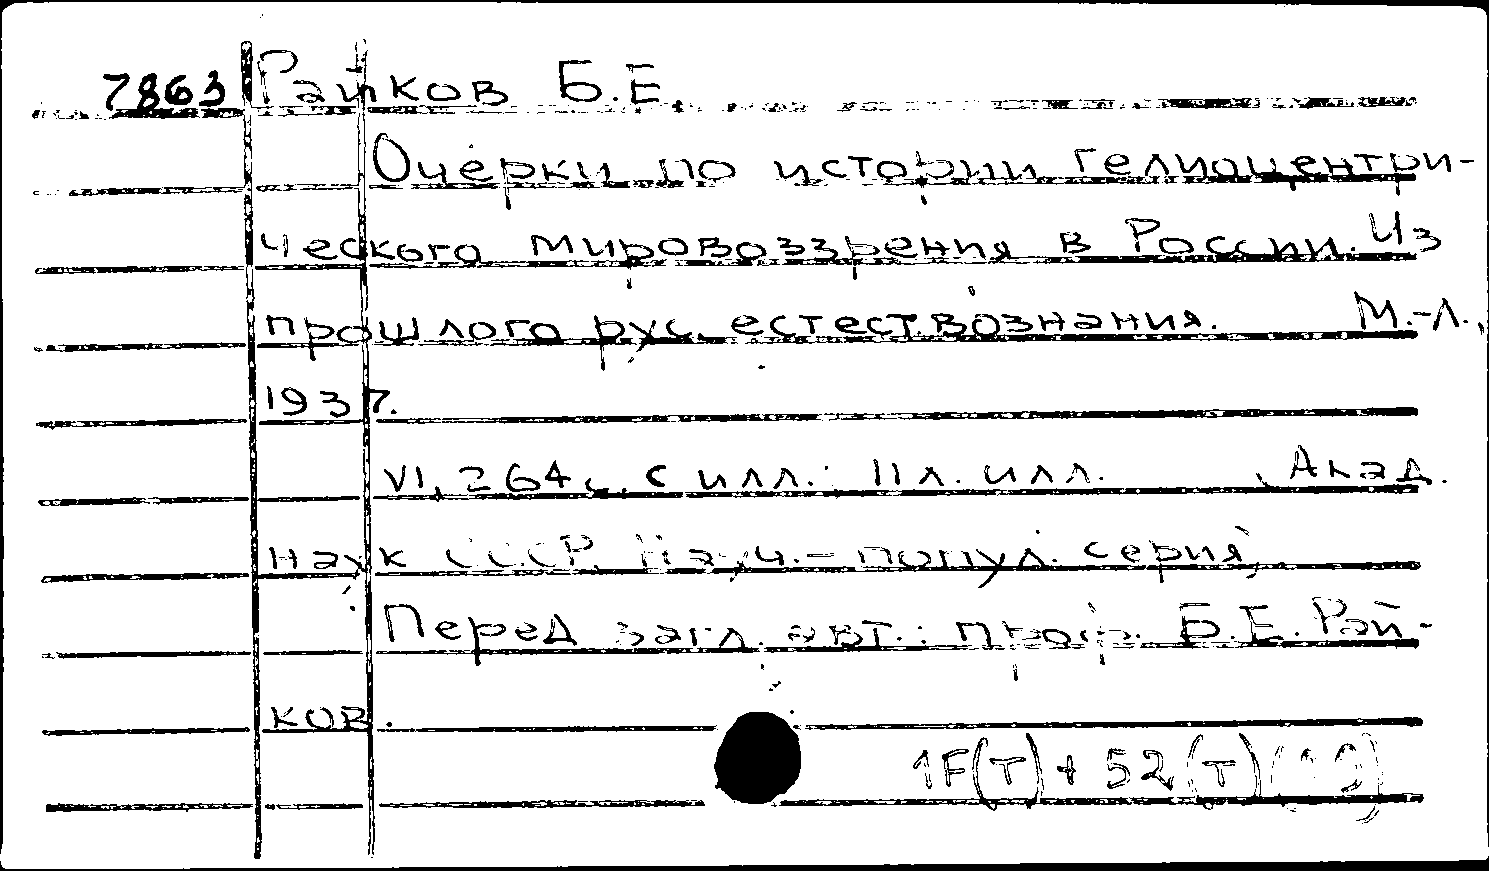 7863 Райков Б.Е.
Очерки по истории гелиоцентри-
ческого мировоззрения в России. Из
прошлого рус. естествознания. М.-Л.,
1937.
VI, 264 с. с илл.; 11 л. илл. (Акад.
наук СССР. Науч.-попул. серия)
Перед загл. авт.: проф. Б.Е. Рай-
ков.
1F(T) + 52(T)